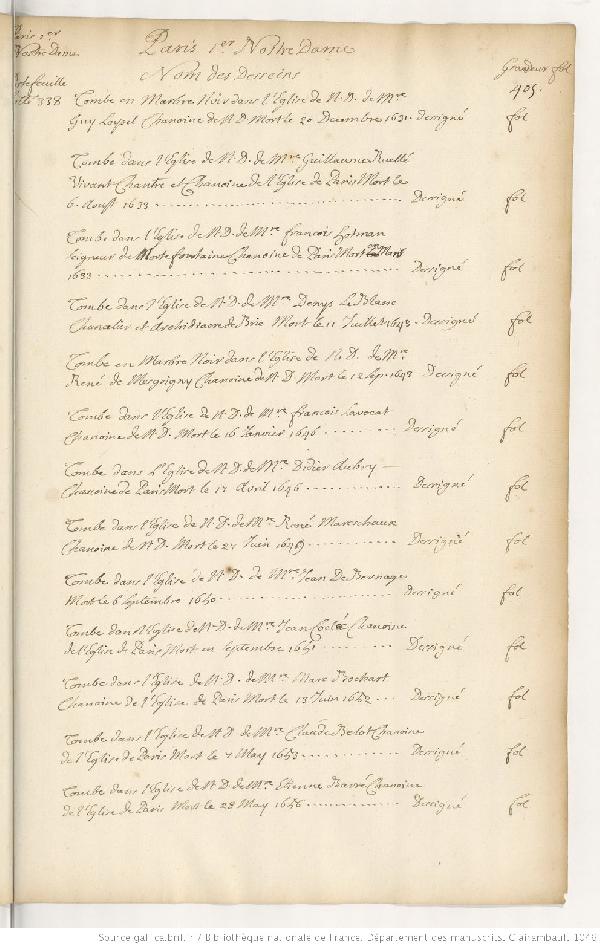 Paris 1er
Nostre Dame
Portefeuille
338
Paris 1er Nostre Dame
Nom des Desseins
Grandeur fol
405.
Tombe en Marbre Noir dans l'Eglise de N. D. de Mre
Guy Loysel Chanoine de N D Mort le 20 Decembre 1631. Dessigné fol
Tombe dans l'Eglise de N. D. de Mre Guillaume Ruellé
Vivant Chantre et Chanoine de l'Eglise de Paris Mort le
6. Aoust 1633 Dessigné fol
Tombe dans l'Eglise de N D. de Mre francois hotman
seigneur de Mortefontaine Chanoine de Paris Mort Mars
1633 Dessigné fol
Tombe dans l'Eglise de N. D. de Mre Denys Le Blanc
Chancelier et Archidiacre de Brie Mort le 11 Juillet 1643. Dessigné fol
Tombe en Marbre Noir dans l'Eglise de N. D. de Mre
René de Mesgrigny Chanoine de N D Mort le 12 Sep. 1643 Dessigné fol
Tombe dans l'Eglise de N. D. de Mre francois Lavocat
Chanoine de N. D. Mort le 16 Janvier 1646 Dessigné fol
Tombe dans L'Eglise de N. D. de Mre Didier Aubry
Chanoine de Paris Mort le 17 Avril 1646 Dessigné fol
Tombe dans l'Eglise de N. D. de Mre René Mareschaux
Chanoine de N. D. Mort le 27 Juin 1649 Dessigné fol
Tombe dans l'Eglise de N. D. de Mre Jean De Bernages
Mort le 6 Septembre 1650 Dessigné fol
Tombe dans l'Eglise de N. D. de Mre Jean Chanoine
de l'Eglise de Paris Mort en septembre 1651 Dessigné fol
Tombe dans l'Eglise de N. D. de Mre Marc Bochart
Chanoine de l'Eglise de Paris Mort le 13 Juin 1652 Dessigné fol
Tombe dans l'Eglise de N. D. de Mre Claude Belot Chanoine
de l'Eglise de Paris Mort le 7 May 1653 Dessigné fol
Tombe dans l'Eglise de N. D. de Mre Etienne Barré Chanoine
de l'Eglise de Paris Mort le 28 May 1656 Dessigné fol
Source gallica.bnf.fr / Bibliothèque nationale de France. Département des manuscrits. Clairambault 1046